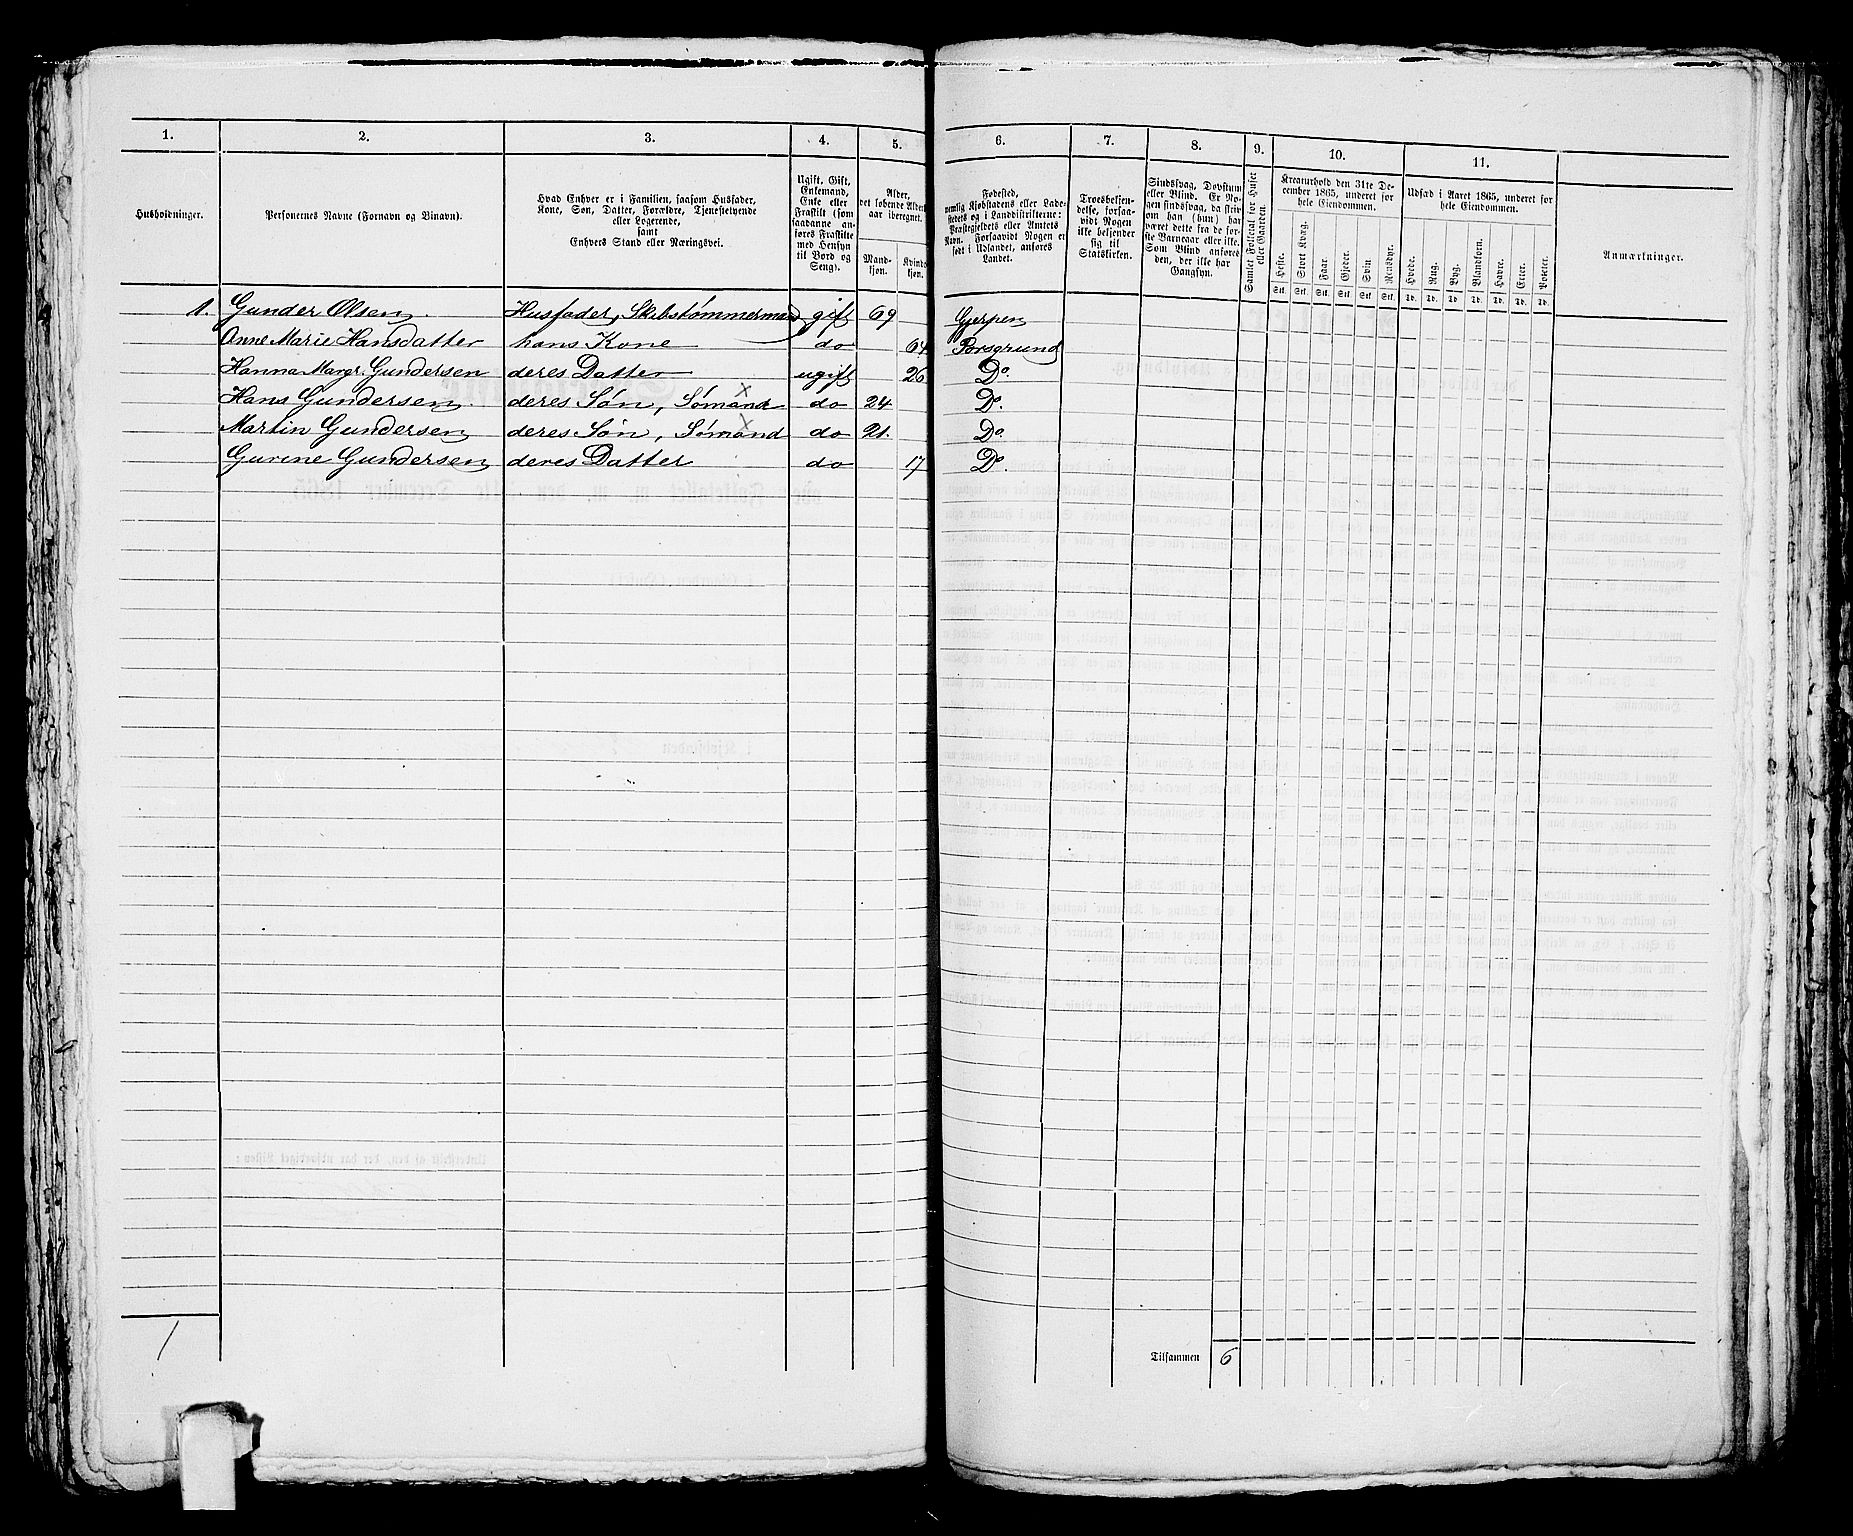 1. 2. 3. 4. 5. 6. 7. 8. 9. 10. 11.
Husholdninger.
Personernes Navne (Fornavn og Binavn).
Hvad Enhver er i Familien, saasom Husfader,
Kone, Søn, Datter, Forældre, Tjenestetyende
eller Logerende,
samt
Enhvers Stand eller Næringsvei.
Ugift, Gift,
Enkemand,
Enke eller
Fraskilt (som
saadanne an-
føres Fraskilte
med Hensyn
til Bord og
Seng).
Alder,
det løbende Alders-
aar iberegnet.
Mand-
kjøn.
Kvinde-
kjøn.
Fødested,
nemlig Kjøbstadens eller Lade-
stedets og i Landdistrikterne:
Præstegjeldets eller Amtets
Navn. Forsaavidt Nogen er
født i Udlandet, anføres
Landet.
Troesbekjen-
delse, forsaa-
vidt Nogen
ikke bekjender
sig til
Statskirken.
Sindssvag, Døvstum
eller Blind. Er No-
gen sindssvag, da skriv
om han (hun) har
været dette fra de før-
ste Barneaar eller ikke.
Som Blind anføres
den, der ikke har
Gangsyn.
Samlet Folketal for Huset
eller Gaarden.
Kreaturhold den 31te De-
cember 1865, underet for
hele Eiendommen.
Heste. Stort Kvæg. Faar. Gjeder. Svin. Rensdyr.
Stk. Stk. Stk. Stk. Stk. Stk.
Udsæd i Aaret 1865, underet for
hele Eiendommen.
Hvede. Rug. Byg. Blandkorn. Havre. Erter. Poteter.
Td. Td. Td. Td. Td. Td. Td.
Anmærkninger.
1. Gunder Olsen. Husfader, Skibstømmermand gift 69 Gjerpen
Anne Marie Hansdatter hans Kone do 64 Porsgrund
Hanna Margr. Gundersen deres Datter ugift 26 Do.
Hans Gundersen. deres Søn, Sømand do 24 Do.
Martin Gundersen deres Søn, Sømand do 21. Do
Gurine Gundersen deres Datter do 17 Do.
1
Tilsammen 6